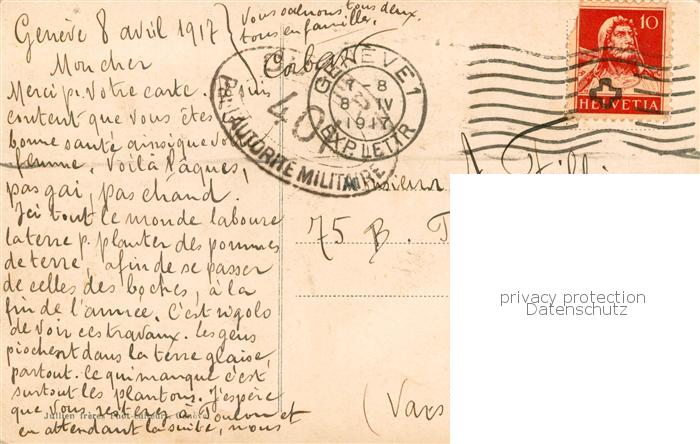 Genève 8 avril 1917
Vous saluons tous deux
tous en familles.
Mon cher
Merci p. votre carte. Je suis
content que vous êtes
bonne santé ainsi que vo
femme. Voilà Pâques,
pas gai, pas chaud.
Ici tout le monde laboure
la terre p. planter des pommes
de terre, afin de se passer
de celles des boches, à la
fin de l'année. C'est rigolo
de voir ces travaux. Les gens
piochent dans la terre glaise,
partout. Ce qui manque c'est
surtout les plantons. J'espère
que vous resterez à Toulon et
en attendant la suite, nous
Jullien frères Phot-éditeurs, Genève
GENÈVE 1
8
8 IV
1917
EXP. LETTR
PAR AUTORITÉ MILITAIRE
40
10
HELVETIA
Monsieur
75 B.
(Vars
privacy protection
Datenschutz